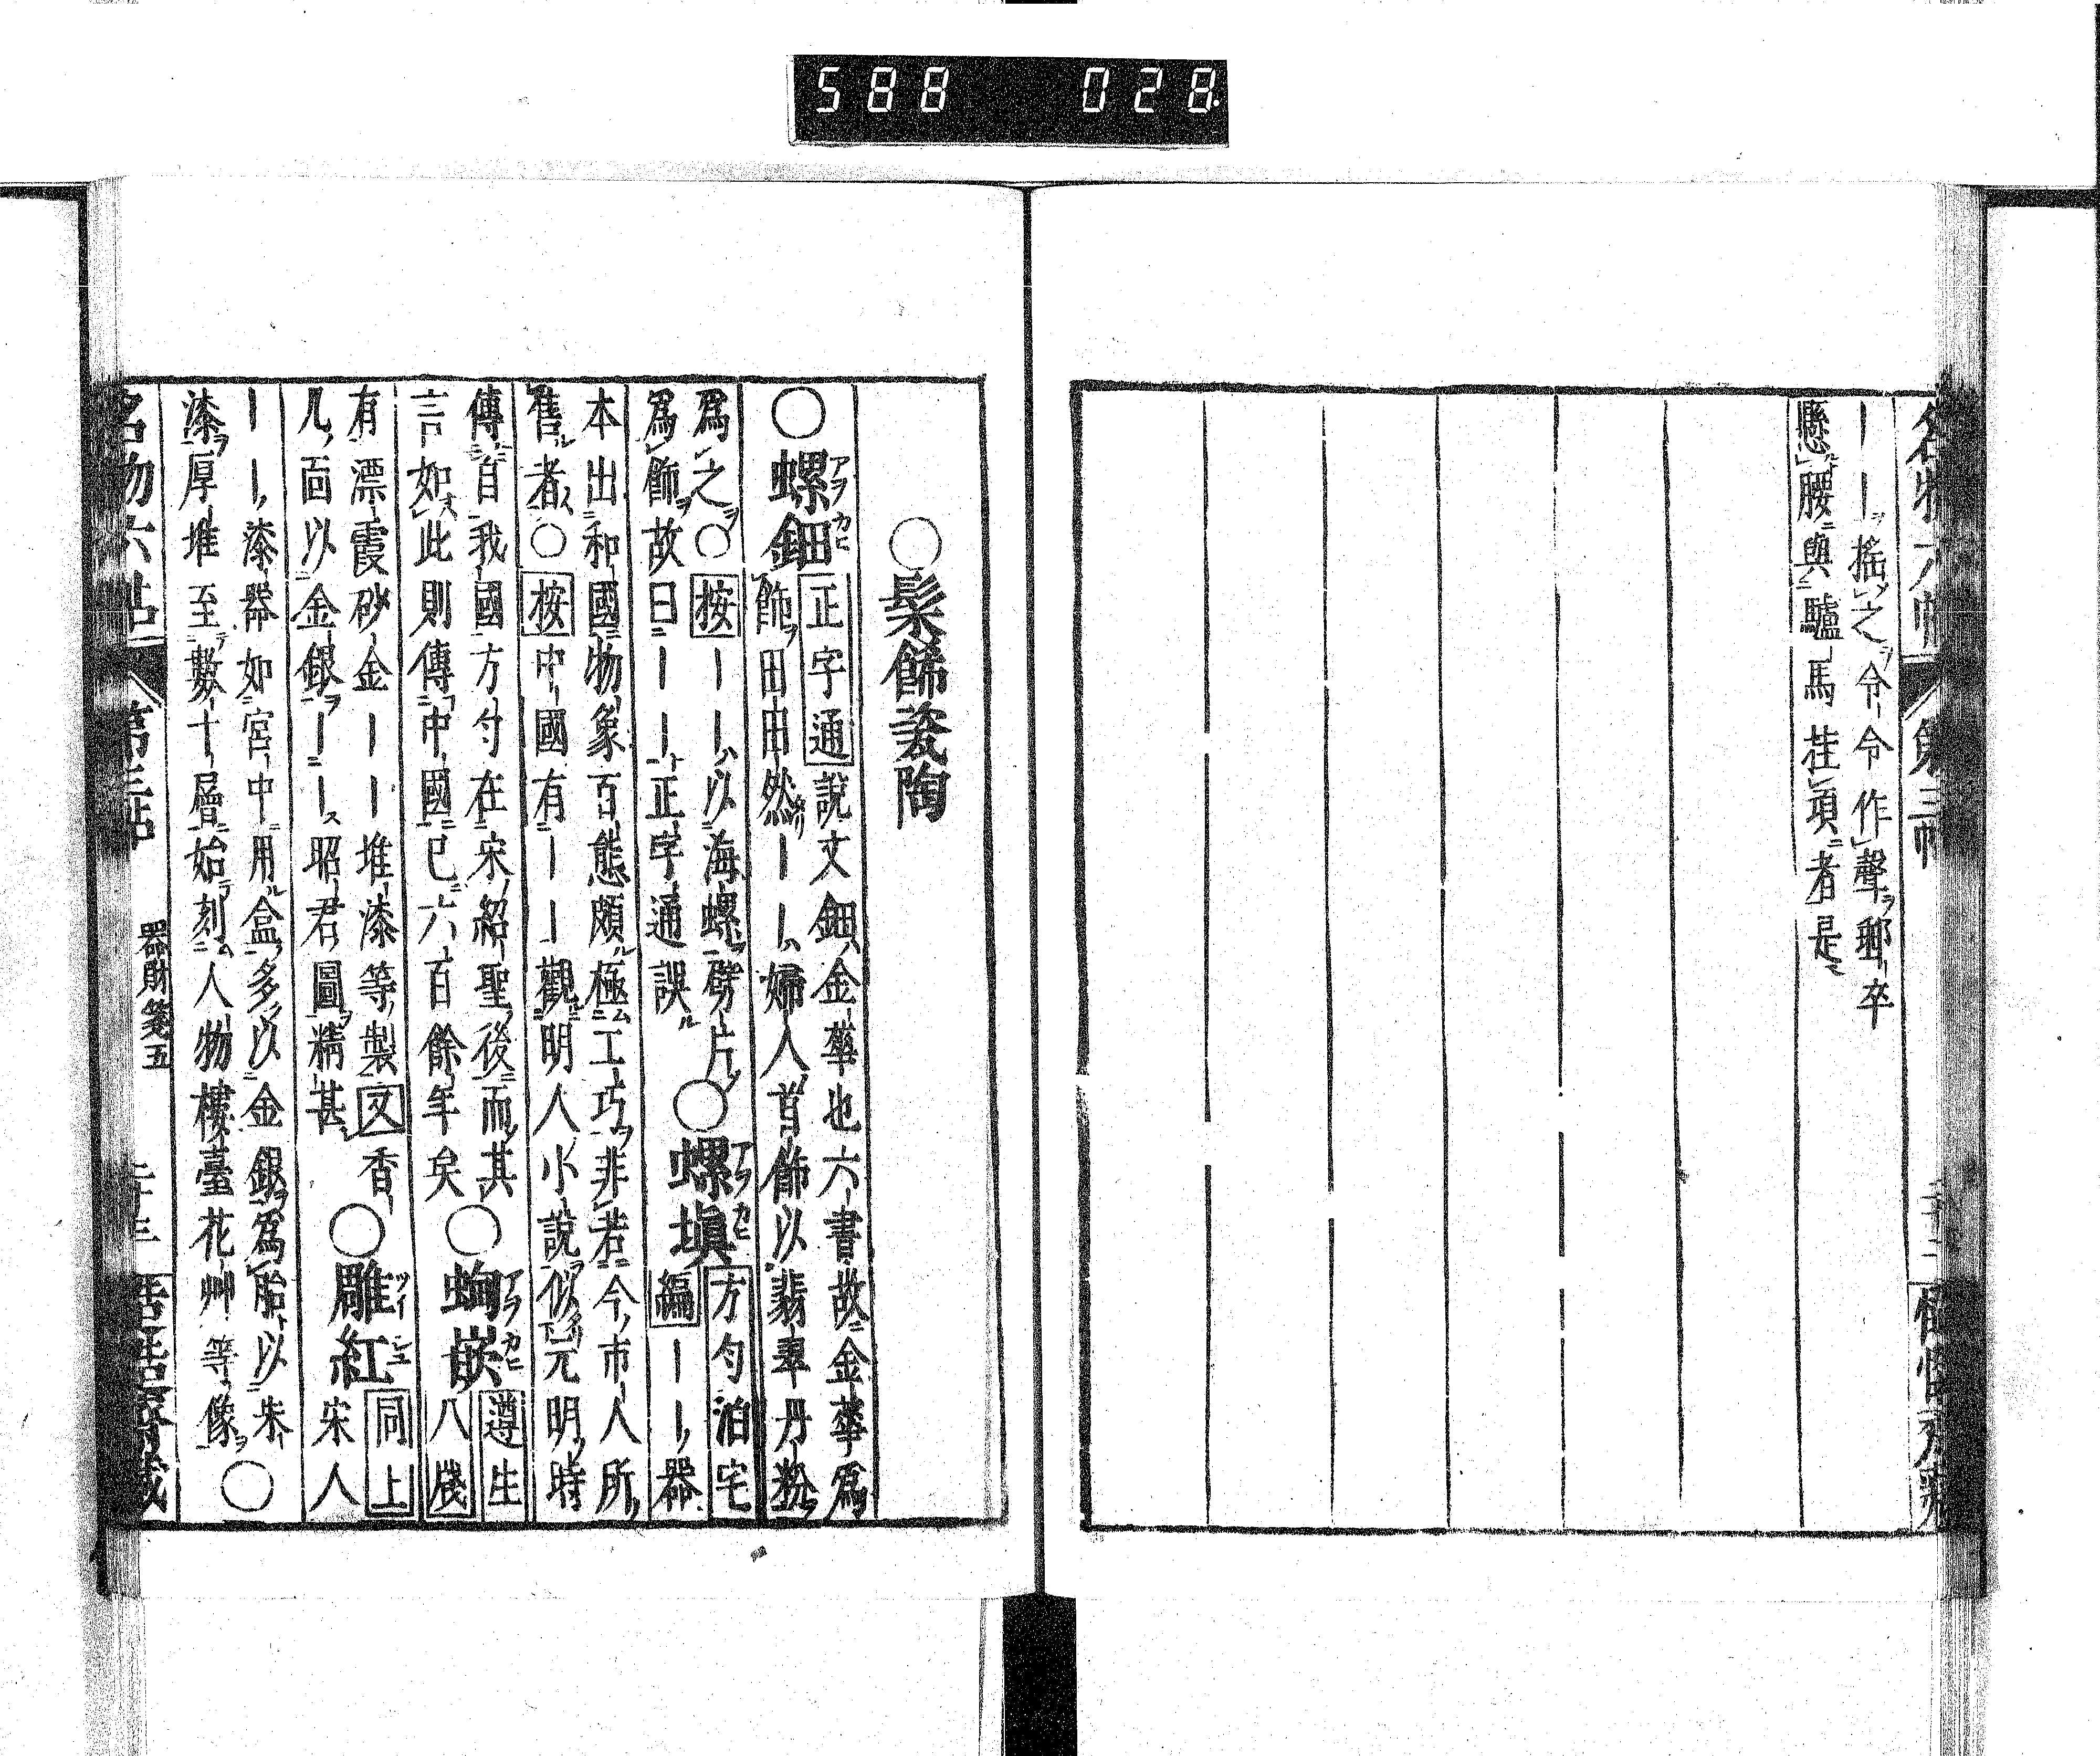 588 028
名物六帖 第三帖
｜｜搖之令令作聲郵卒
懸腰與驢馬挂項者是
○髹飾瓷陶
○螺鈿アヲカヒ 正字通 說文鈿金華也六書故金華爲
飾田田然｜｜婦人首飾以翡翠丹粉
爲之○按｜｜以海螺劈片
爲飾故曰｜｜正字通誤
○螺塡アヲカヒ 方勺泊宅編 ｜｜器
本出和國物象百態頗極工巧非若今市人所
售者○按中國有｜｜觀明人小說似元明時
傳自我國方勺在宋紹聖後而其
言如此則傳中國已六百餘年矣
○蜔嵌アヲカヒ 遵生八牋
有漂霞砂金｜｜堆漆等製 又香
几面以金銀｜｜昭君圖精甚
○雕紅ツイシユ 同上 宋人
｜｜漆器如宮中用盒多以金銀爲胎以朱
漆厚堆至數十層始刻人物樓臺花艸等像○
名物六帖 第三帖 器財箋五 二十三